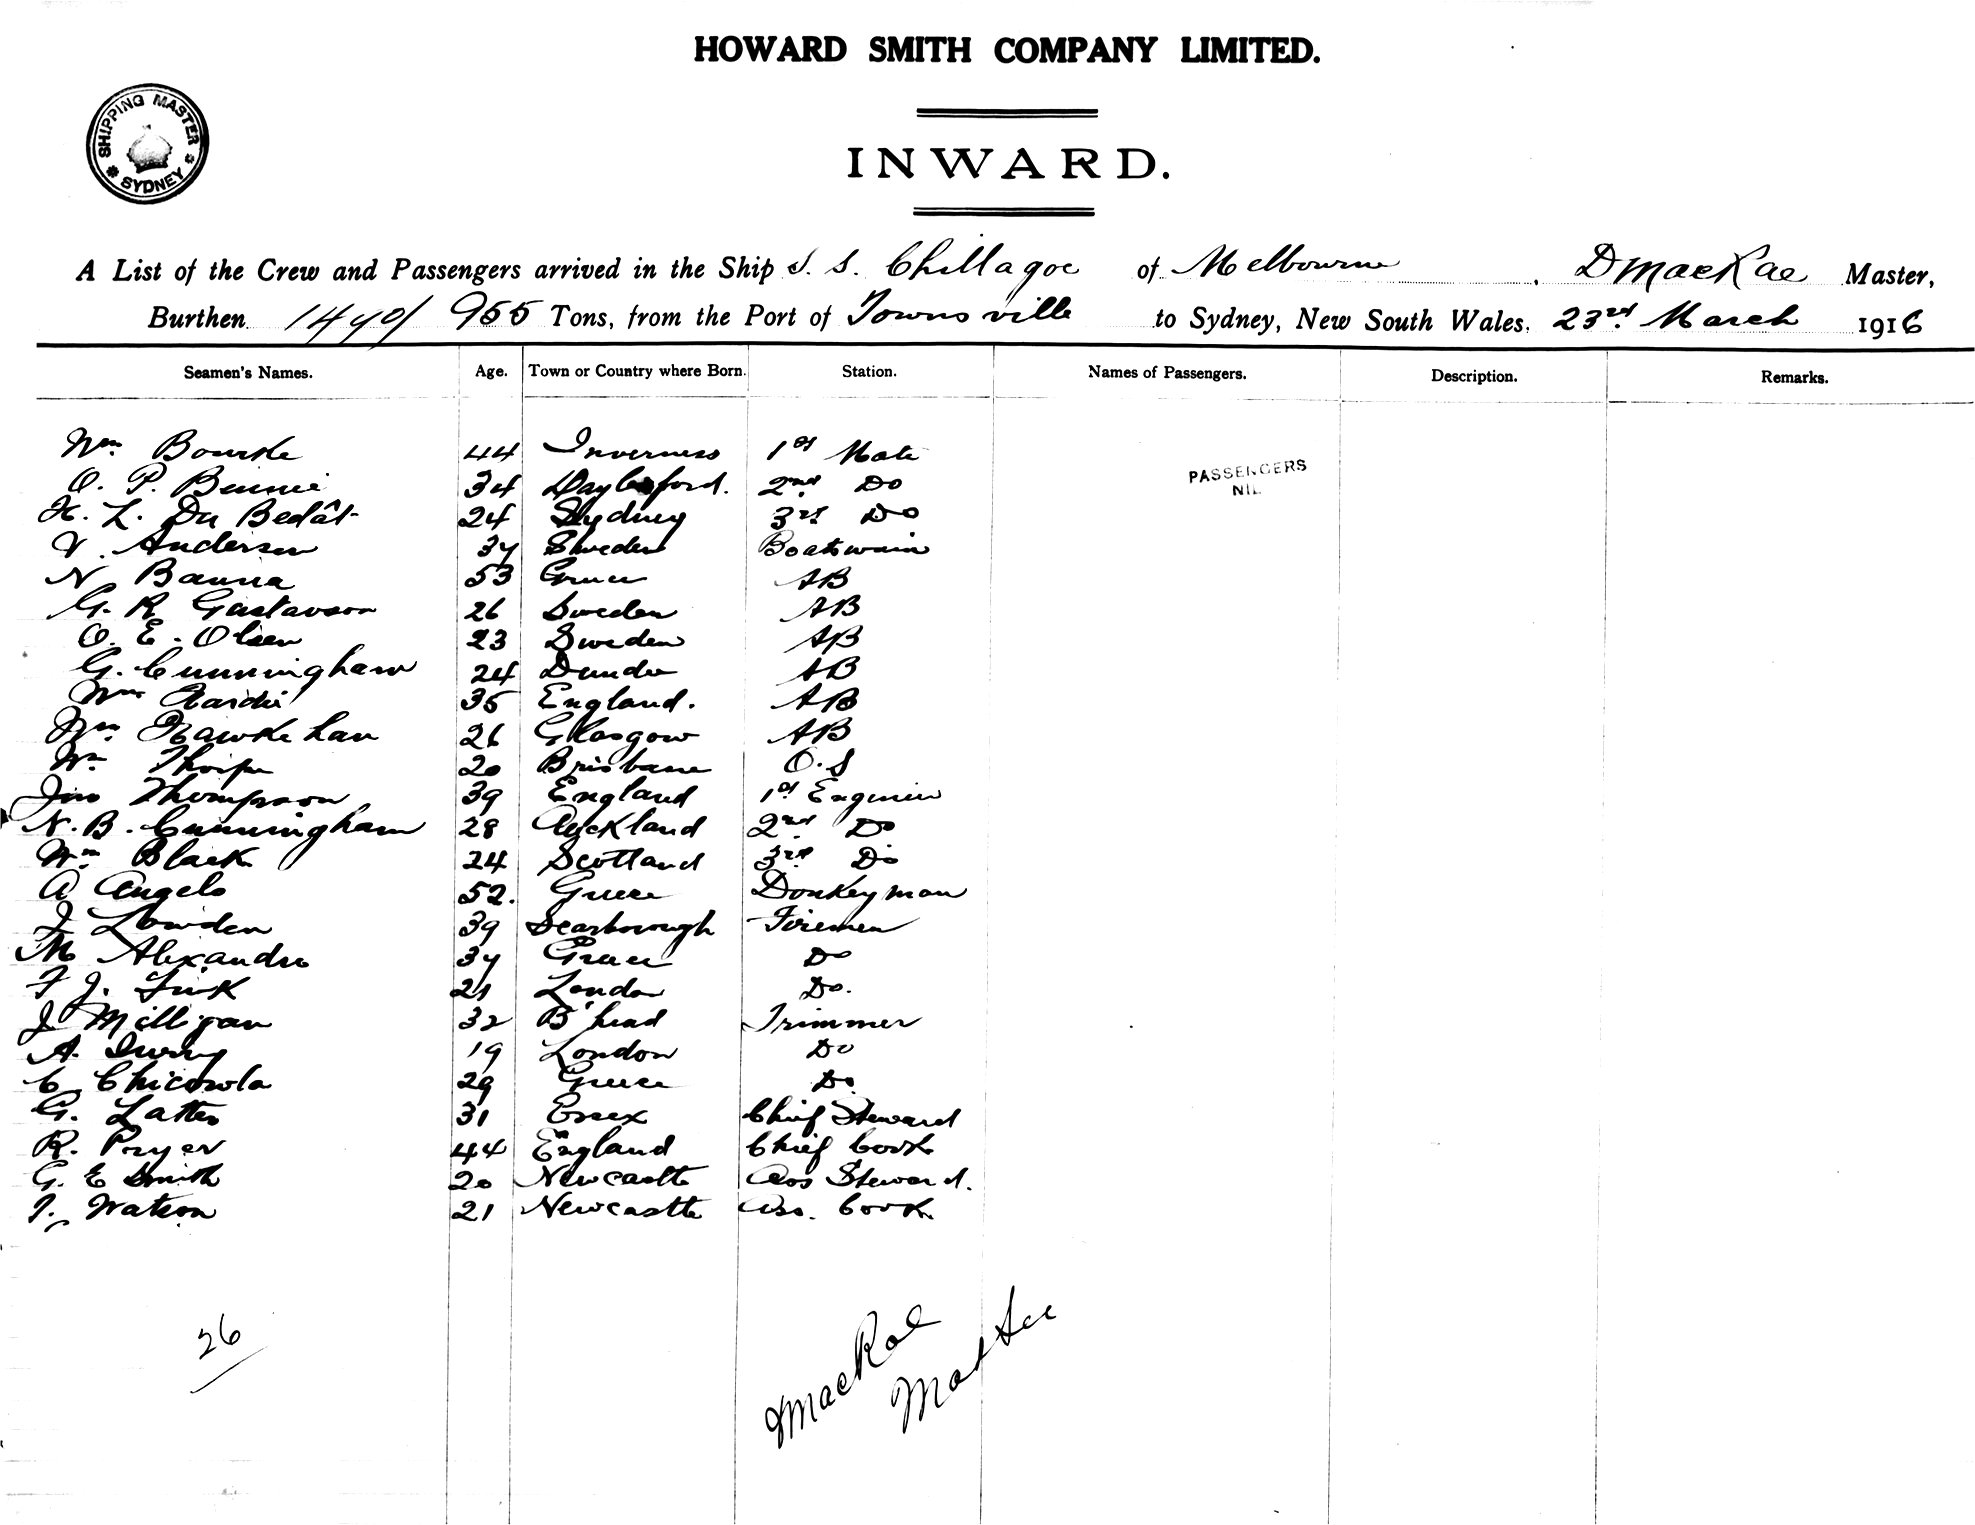 HOWARD SMITH COMPANY LIMITED.
SHIPPING MASTER
SYDNEY
INWARD.
A List of the Crew and Passengers arrived in the Ship S. S. Chillagoe of Melbourne, D MacKae Master,
Burthen 1490/ 955 Tons, from the Port of Townsville to Sydney, New South Wales, 23rd March 1916
Seamen's Names. Age. Town or Country where Born. Station. Names of Passengers. Description. Remarks.
Wm Bourke 44 Inverness 1st Mate
O. P. Binnie 34 Daylesford. 2nd Do
H. L. Du Bedât 24 Sydney 3rd Do
V. Anderson 34 Sweden Boatswain
PASSENGERS
NIL
N. Banna 53 Greece AB
G. R. Gustavson 26 Sweden AB
O. E. Olsen 23 Sweden AB
G. Cunningham 24 Dundee AB
Wm Hardie 35 England. AB
Wm 26 Glasgow AB
Wm Thorpe 20 Brisbane O.S
Jno Thompson 39 England 1st Engineer
N. B. Cunningham 28 Auckland 2nd Do
Wm Black 24 Scotland 3rd Do
A Angelo 52. Greece Donkeyman
J Lowden 39 Scarborough Firemen
M Alexandre 34 Greece Do
F J. Fink 21 London Do.
J Milligan 32 B'head Trimmer
A. 19 London Do
C. Chicowla 29 Greece Do
G. Latter 31 Essex Chief Steward
R. Pryer 44 England Chief Cook
G. E Smith 20 Newcastle Ass Steward.
J. Watson 21 Newcastle Ass. Cook
26
DMacKae
Master